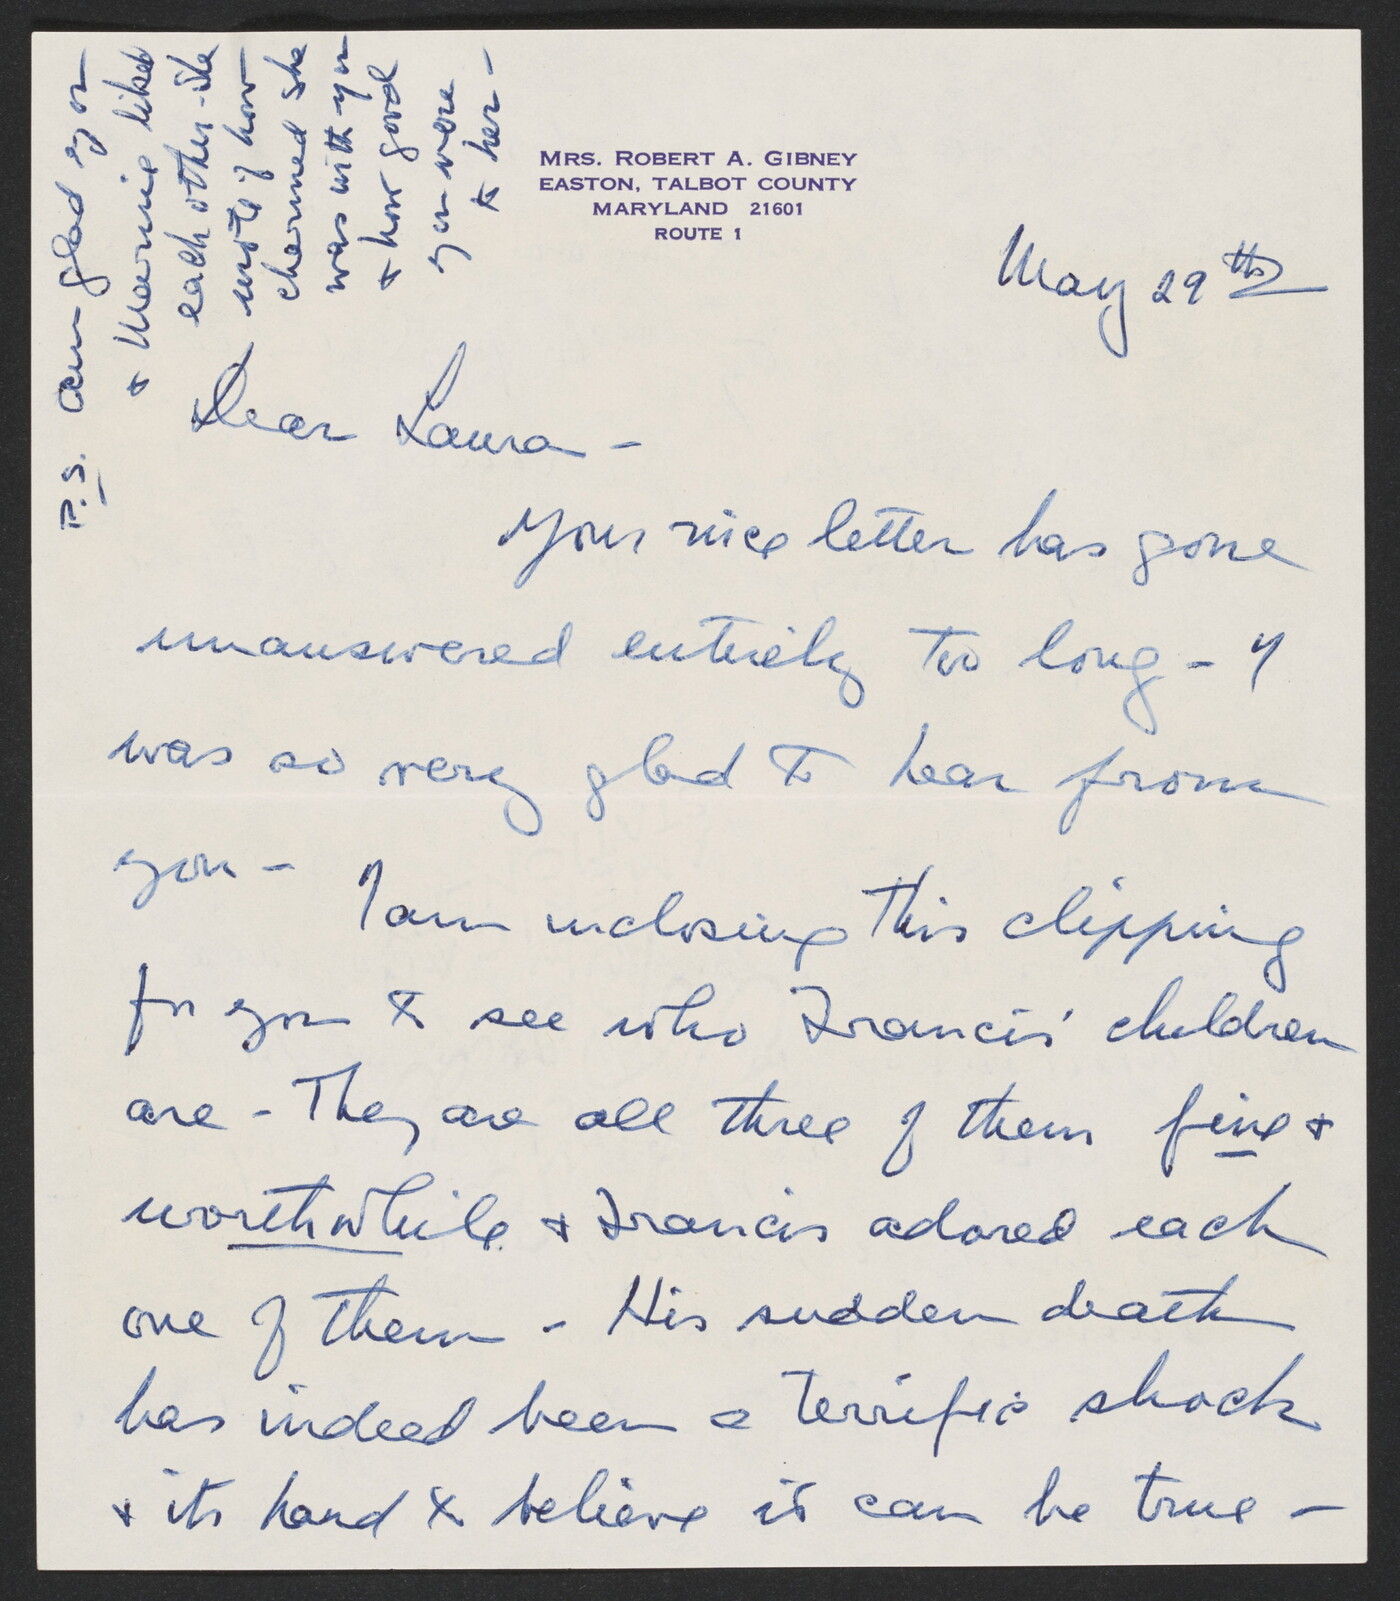 MRS. ROBERT A. GIBNEY
EASTON, TALBOT COUNTY
MARYLAND 21601
ROUTE 1
May 29th
Dear Laura -
Your nice letter has gone
unanswered entirely too long - I
was so very glad to hear from
you -
I am inclosing this clipping
for you to see who Francis' children
are - They are all three of them fine &
worthwhile & Francis adored each
one of them - His sudden death
has indeed been a terrific shock
& its hard to believe it can be true -
P.S. Am glad you
& Marnie liked
each other - she
wrote of how
charmed she
was with you
& how good
you were
to her -